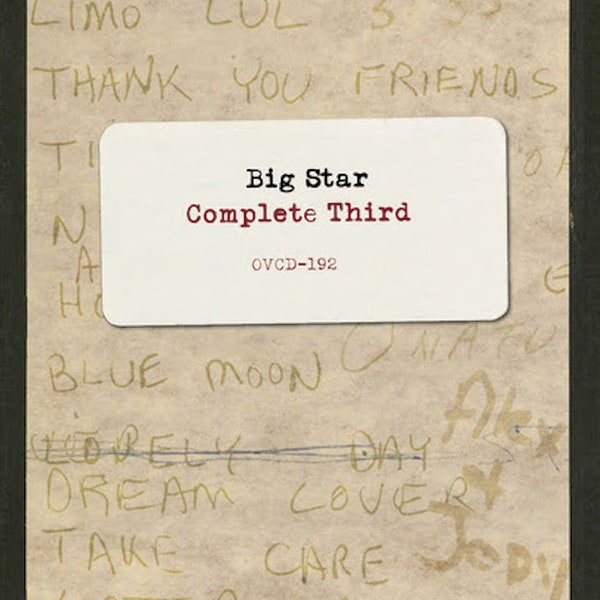 LIMO LUL 3:33
THANK YOU FRIENDS
Big Star
Complete Third
OVCD-192
BLUE MOON
LOVELY DAY
Alex
DREAM LOVER
&
TAKE CARE
Jody